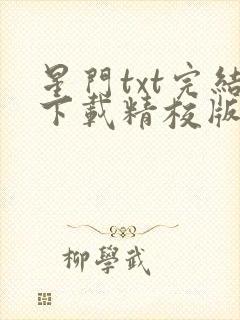 星門txt完結
下載精校版
柳學武